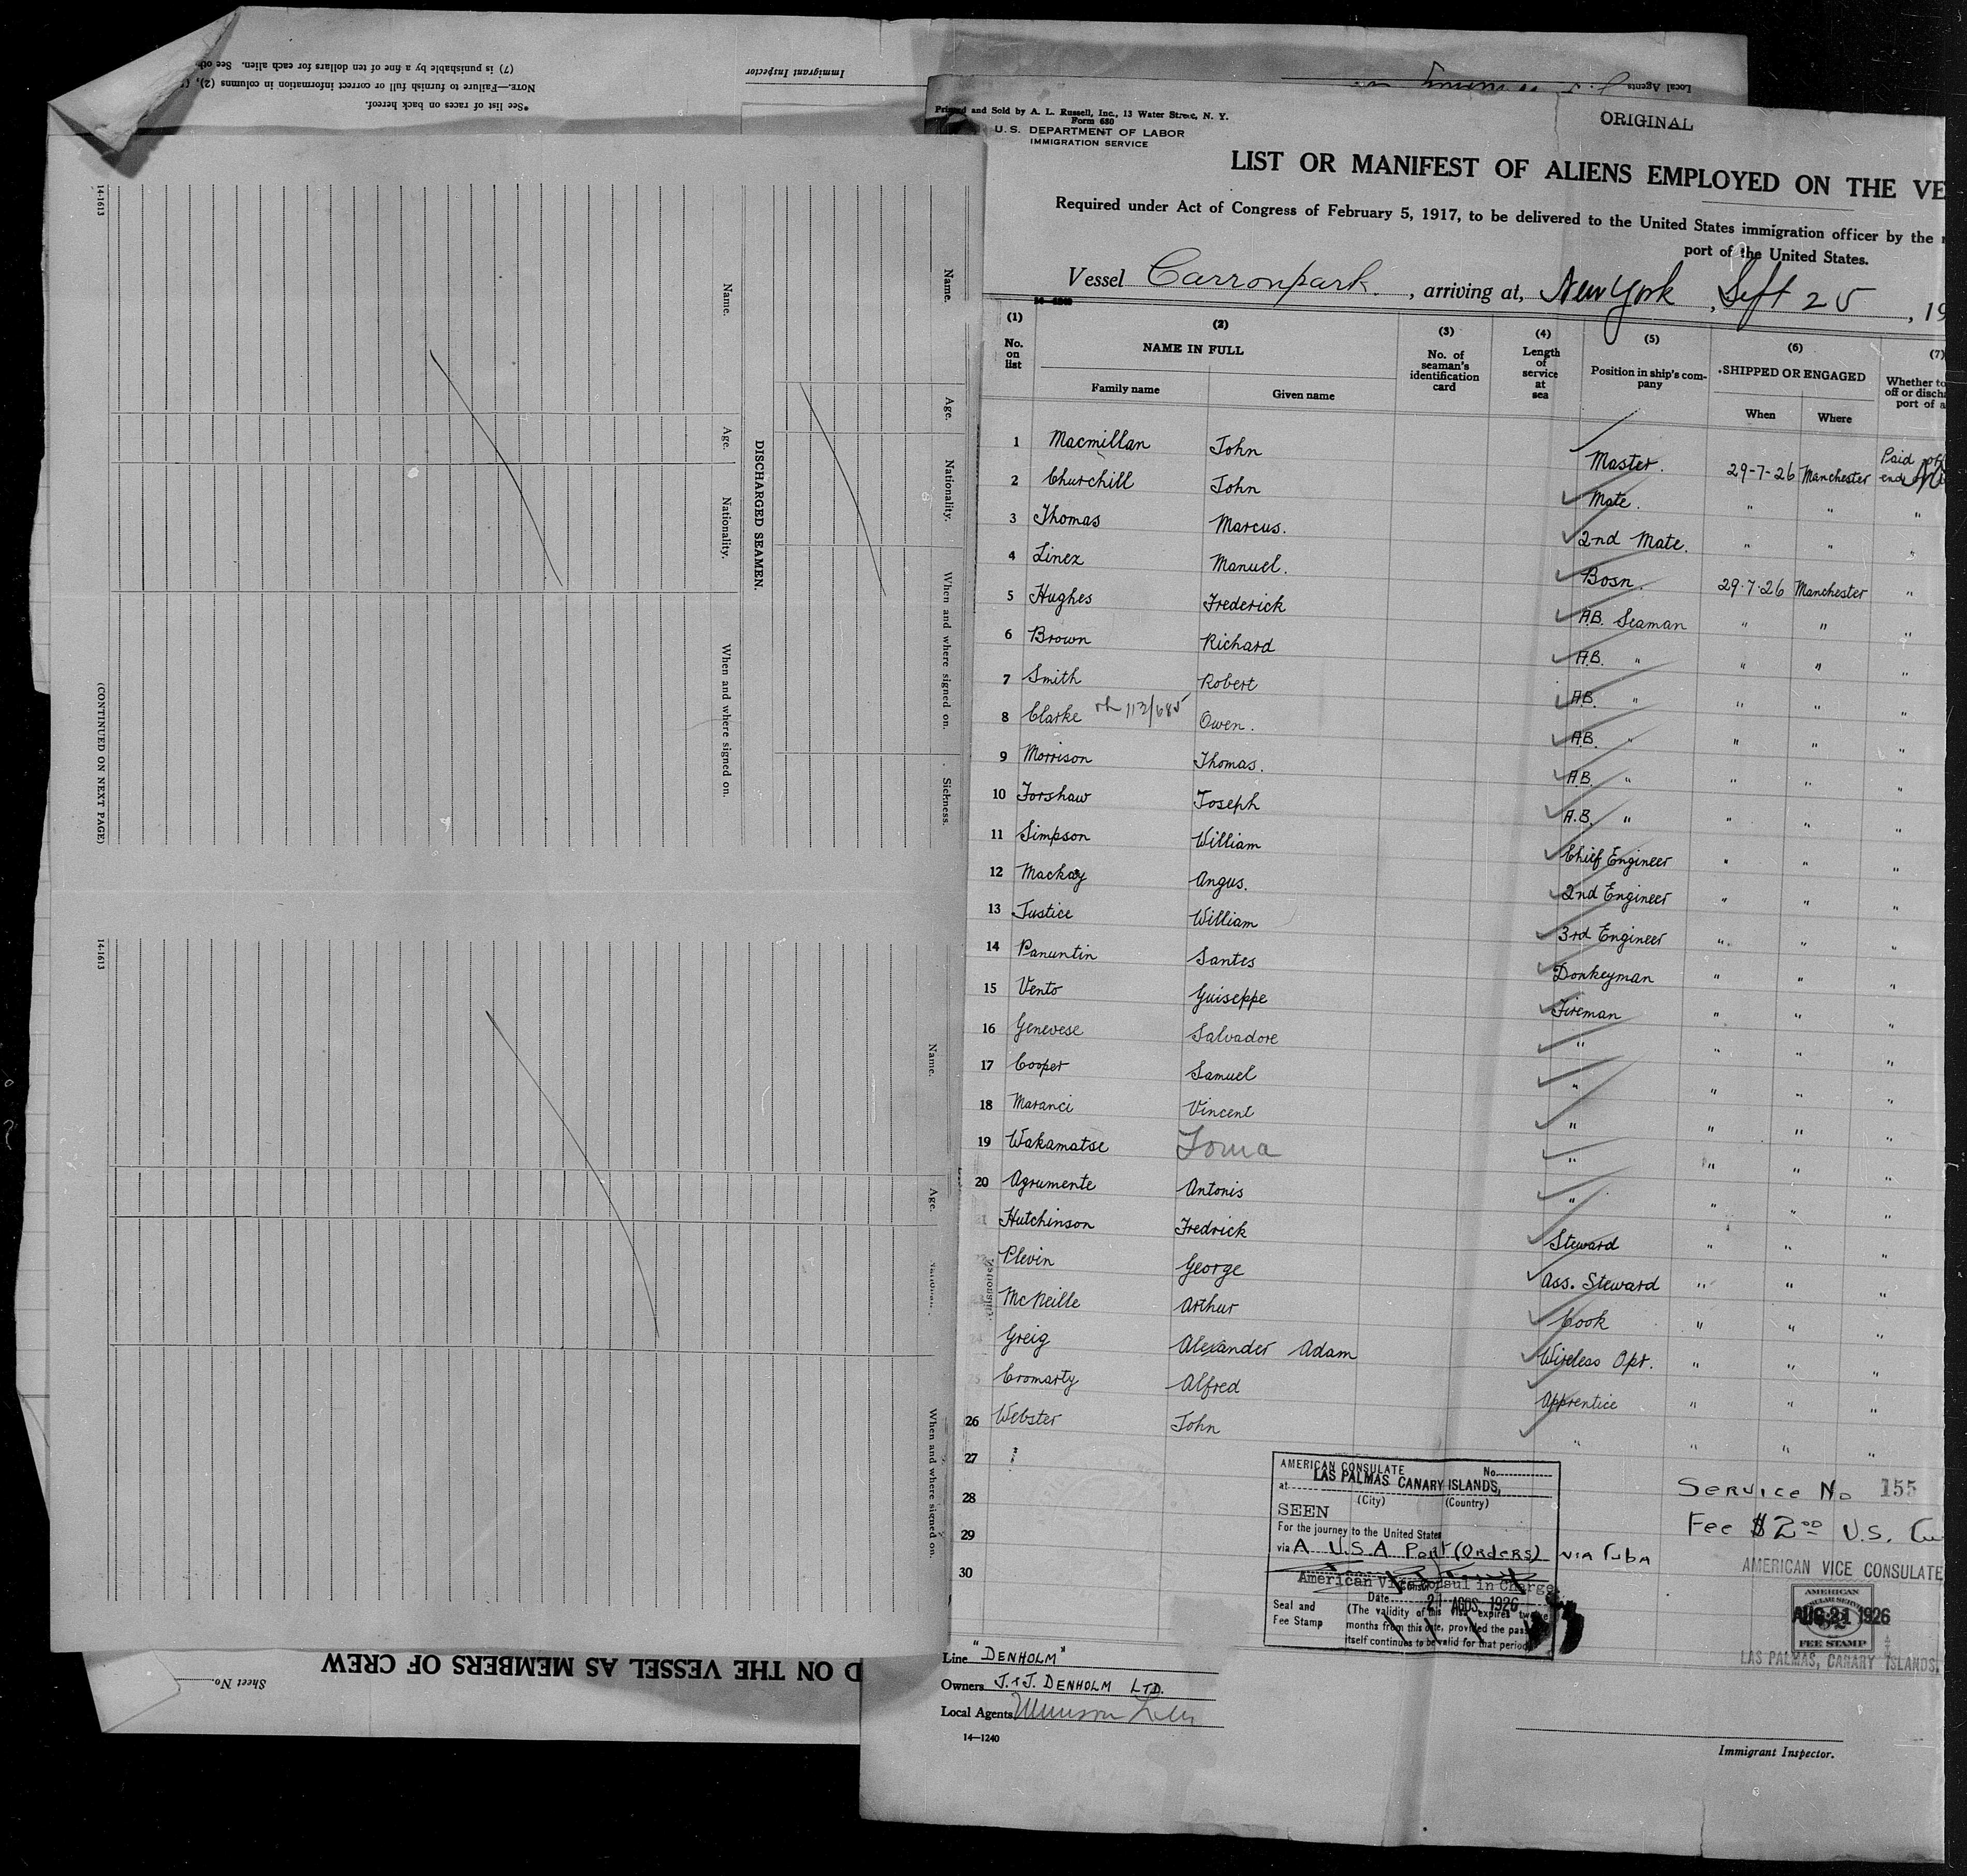 (7) is punishable by a fine of ten dollars for each alien. See
NOTE.—Failure to furnish full or correct information in columns (2),
*See list of races on back hereof.
Immigrant Inspector
Local Agents
14-1613
Name.
Age.
Nationality.
When and where signed on.
(CONTINUED ON NEXT PAGE)
DISCHARGED SEAMEN.
Name.
Age.
Nationality.
When and where signed on.
Sickness.
14-1613
Name.
Age.
When and where signed on.
D ON THE VESSEL AS MEMBERS OF CREW
Sheet No.
Printed and Sold by A. L. Russell, Inc., 13 Water Street, N. Y.
Form 680
U. S. DEPARTMENT OF LABOR
IMMIGRATION SERVICE
ORIGINAL
LIST OR MANIFEST OF ALIENS EMPLOYED ON THE VE
Required under Act of Congress of February 5, 1917, to be delivered to the United States immigration officer by the
port of the United States.
Vessel Carronpark, arriving at, New York, Sept 25, 19
(1) (2) (3) (4) (5) (6) (7)
No. on list
NAME IN FULL
Family name Given name
No. of seaman's identification card
Length of service at sea
Position in ship's company
SHIPPED OR ENGAGED
When Where
Whether to
off or disch
port of a
1 Macmillan John Master. 29-7-26 Manchester Paid off end
2 Churchill John Mate. " " "
3 Thomas Marcus. 2nd Mate. " " "
4 Linez Manuel. Bosn. 29-7-26 Manchester "
5 Hughes Frederick A.B. Seaman " " "
6 Brown Richard A.B. " " " "
7 Smith Robert A.B. " " " "
8 Clarke 113/685 Owen. A.B. " " " "
9 Morrison Thomas. A.B. " " " "
10 Forshaw Joseph A.B. " " " "
11 Simpson William Chief Engineer " " "
12 Mackay Angus. 2nd Engineer " " "
13 Justice William 3rd Engineer " " "
14 Panuntin Santes Donkeyman " " "
15 Vento Guiseppe Fireman " " "
16 Genevese Salvadore " " " "
17 Cooper Samuel " " " "
18 Maranci Vincent " " " "
19 Wakamatse Toma " " " "
20 Agrumente Antonis " " " "
21 Hutchinson Fredrick Steward " " "
Plevin George Ass. Steward " " "
McNeille Arthur Cook " " "
24 Greig Alexander Adam Wireless Opr. " " "
Cromarty Alfred Apprentice " " "
26 Webster John " " " "
27
28
29
30
AMERICAN CONSULATE No.
at LAS PALMAS CANARY ISLANDS,
(City) (Country)
SEEN
For the journey to the United States
via A U.S.A Port (Orders) via Cuba
American Vice Consul in Charge
Date 21 AGOS. 1926
Seal and Fee Stamp
(The validity of this visa expires twelve
months from this date, provided the pass
itself continues to be valid for that period
Service No 155
Fee $2.00 U.S.
AMERICAN VICE CONSULATE
AMERICAN
CONSULAR SERVICE
AUG 21 1926
FEE STAMP
LAS PALMAS, CANARY ISLANDS.
Line "DENHOLM"
Owners J. & J. DENHOLM LTD.
Local Agents Munson Line
14—1240
Immigrant Inspector.